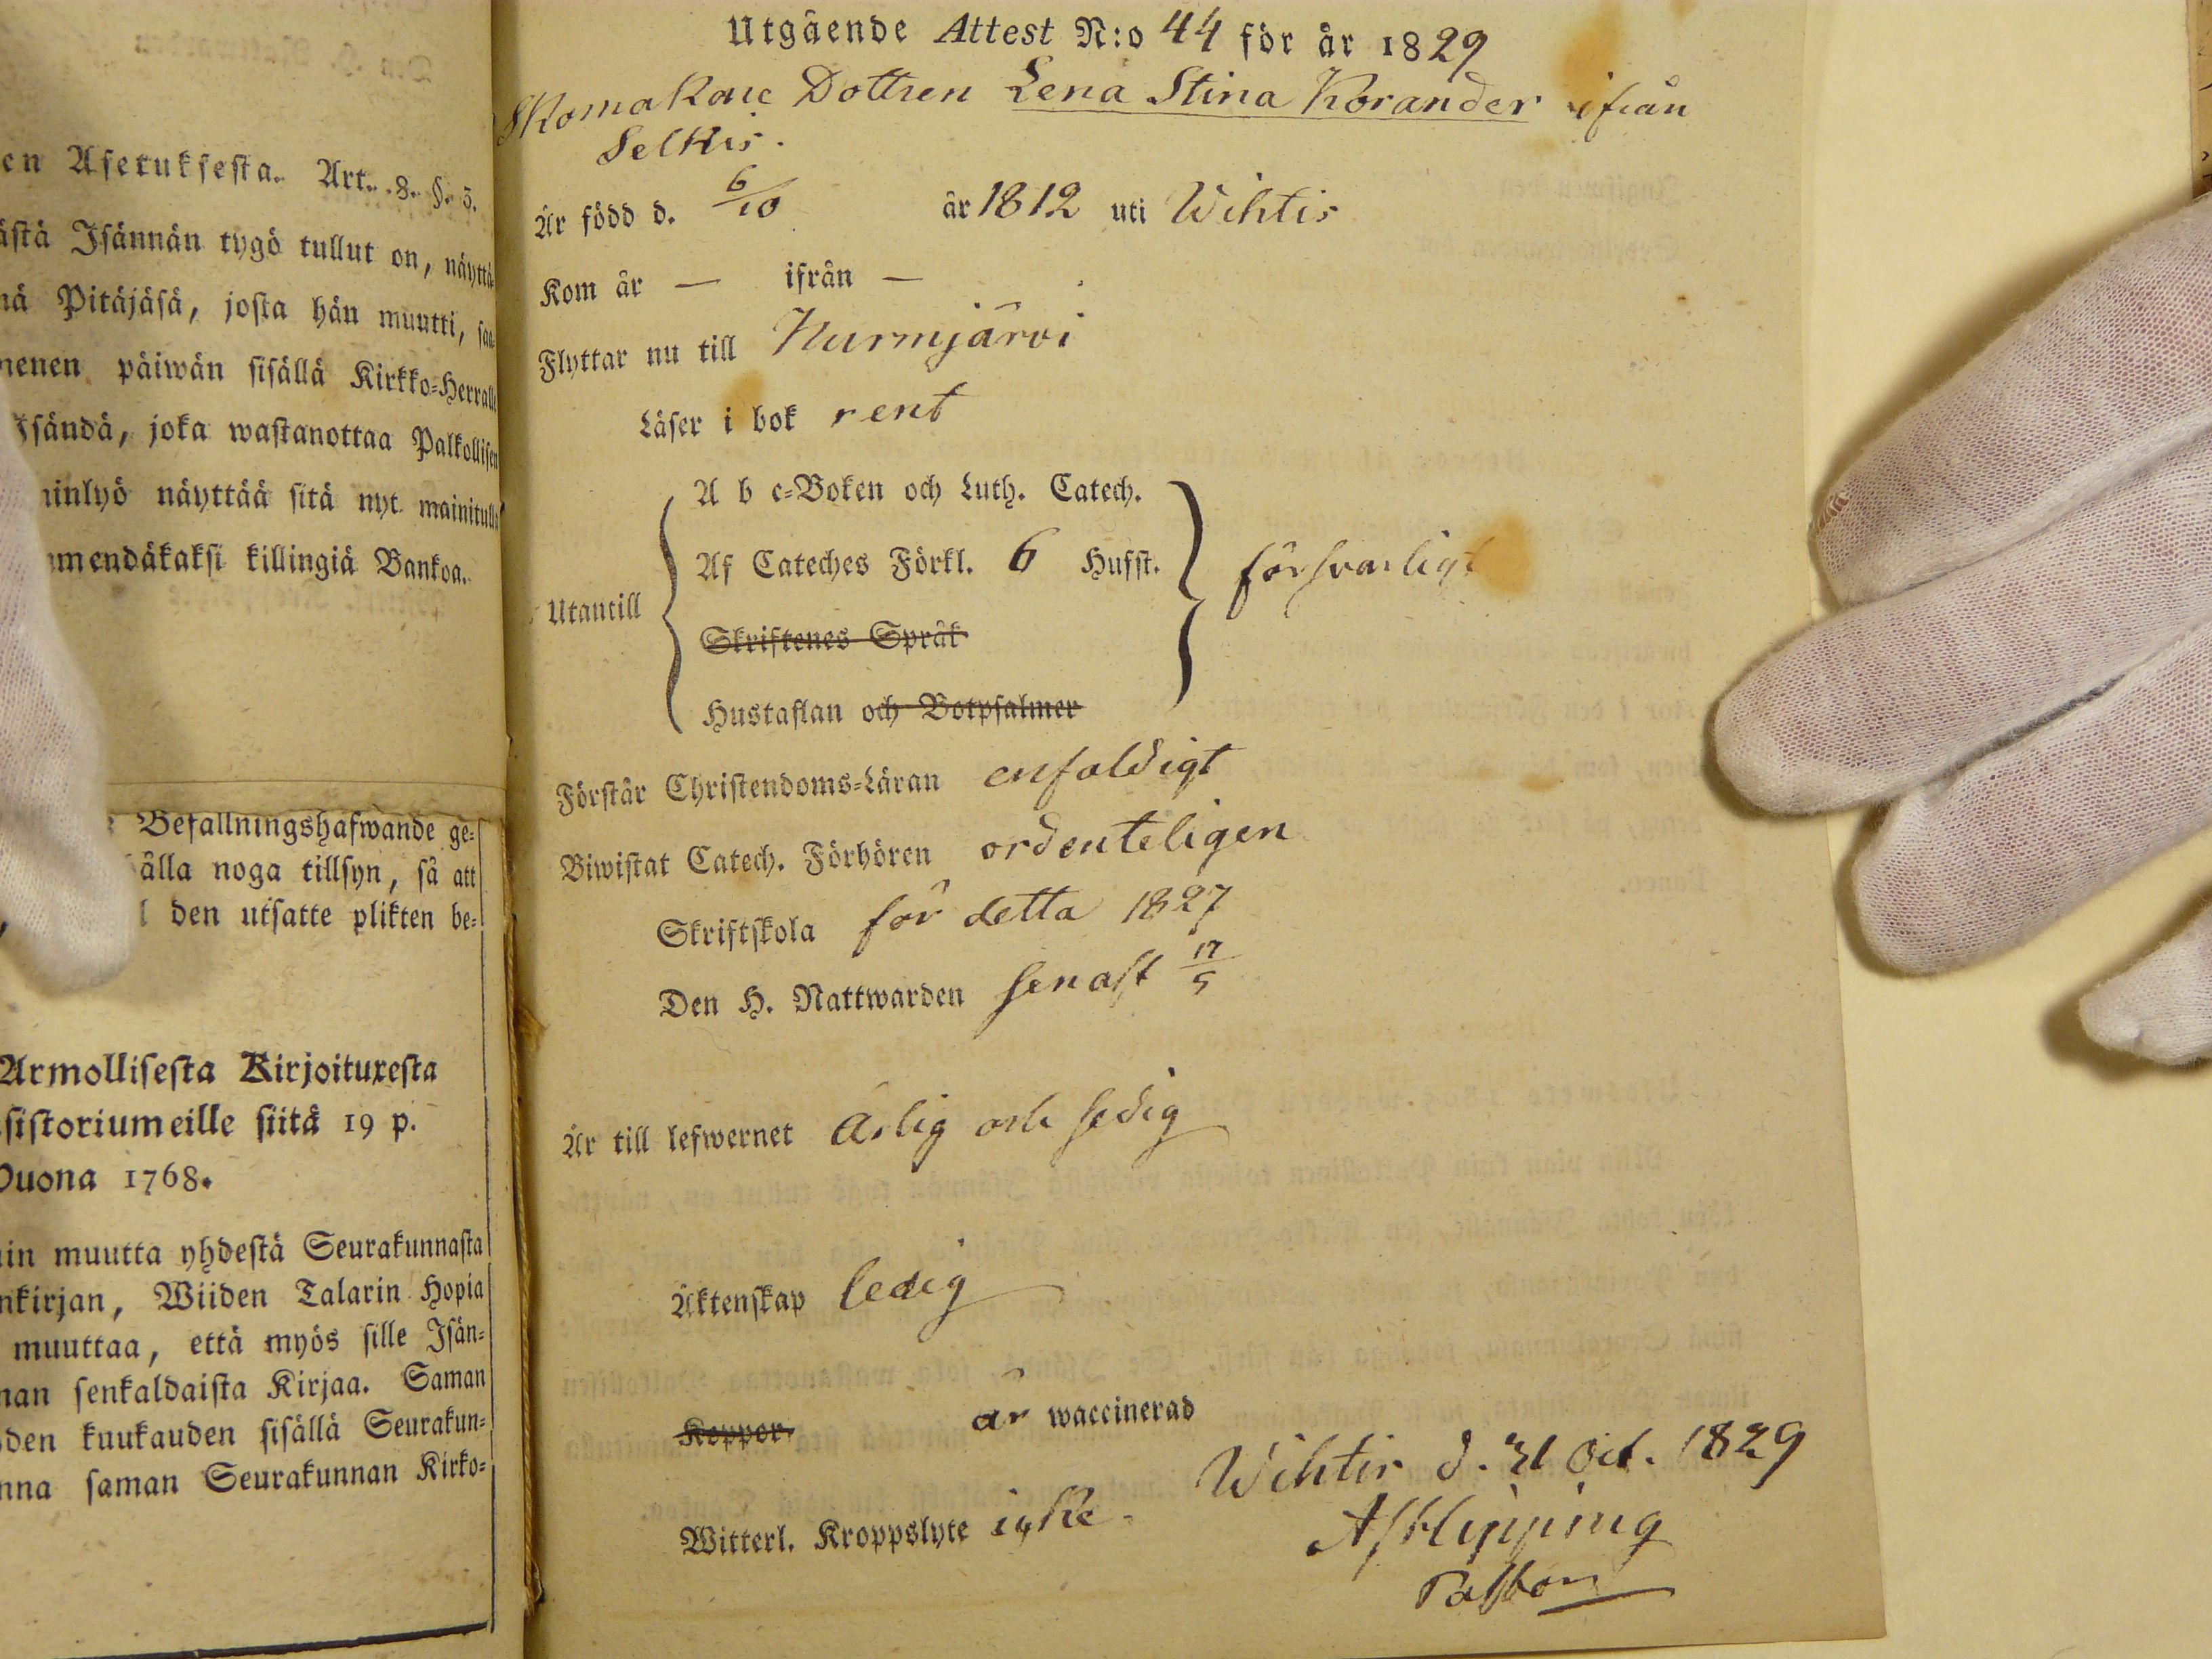 en Asetuksesta. Art. 8. §. 3.
ästä Isännän tygö tullut on, näyttä
nä Pitäjäsä, josta hän muutti, saa
menen päiwän sisällä Kirkko-Herralle
Isändä, joka wastanottaa Palkollisen
minlyö näyttää sitä nyt mainitulla
mmendäkaksi killingiä Bankoa.
Befallningshafwande ge-
ålla noga tillsyn, så att
den utsatte plikten be-
Armollisesta Kirjoituxesta
sistoriumeille siitä 19 p.
Ouona 1768.
in muutta yhdestä Seurakunnasta
nkirjan, Wiiden Talarin Hopia
muuttaa, että myös sille Isän-
nan senkaldaista Kirjaa. Saman
den kuukauden sisällä Seurakun-
nna saman Seurakunnan Kirko-
Utgående Attest N:o 44 för år 1829
Skomakare Dottren Lena Stina Korander ifrån
Selkis.
Är född d. 6/10 år 1812 uti Wihtis
Kom år — ifrån —
Flyttar nu till Nurmjärvi
Läser i bok rent
A b c-Boken och Luth. Catech.
Af Cateches Förkl. 6 Hufst.
Utantill försvarligt
Skriftenes Språk
Hustaflan och Botpsalmer
Förstår Christendoms-Läran enfaldigt
Biwistat Catech. Förhören ordenteligen
Skriftskola för detta 1827
Den H. Nattwarden senast 17/5
Är till lefwernet ärlig och sedig
Äktenskap ledig
Koppor är waccinerad
Wihtis d. 31 Oct. 1829
Witterl. Kroppslyte icke.
A F Hipping
Pastor